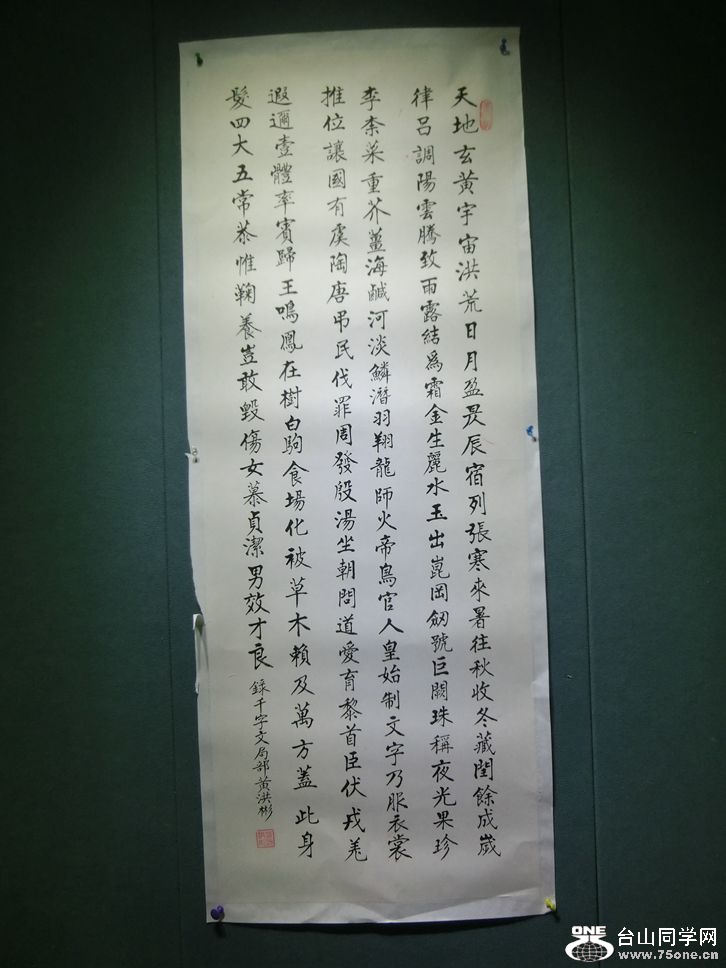 天地玄黃宇宙洪荒日月盈昃辰宿列張寒來暑往秋收冬藏閏餘成歲
律呂調陽雲騰致雨露結爲霜金生麗水玉出崑岡劒號巨闕珠稱夜光果珍
李柰菜重芥薑海鹹河淡鱗潛羽翔龍師火帝鳥官人皇始制文字乃服衣裳
推位讓國有虞陶唐弔民伐罪周發殷湯坐朝問道愛育黎首臣伏戎羌
遐邇壹體率賓歸王鳴鳳在樹白駒食場化被草木賴及萬方蓋此身
髮四大五常恭惟鞠養豈敢毀傷女慕貞潔男效才良
録千字文局部黃洪彬
ONE
台山同学网
www.75one.cn